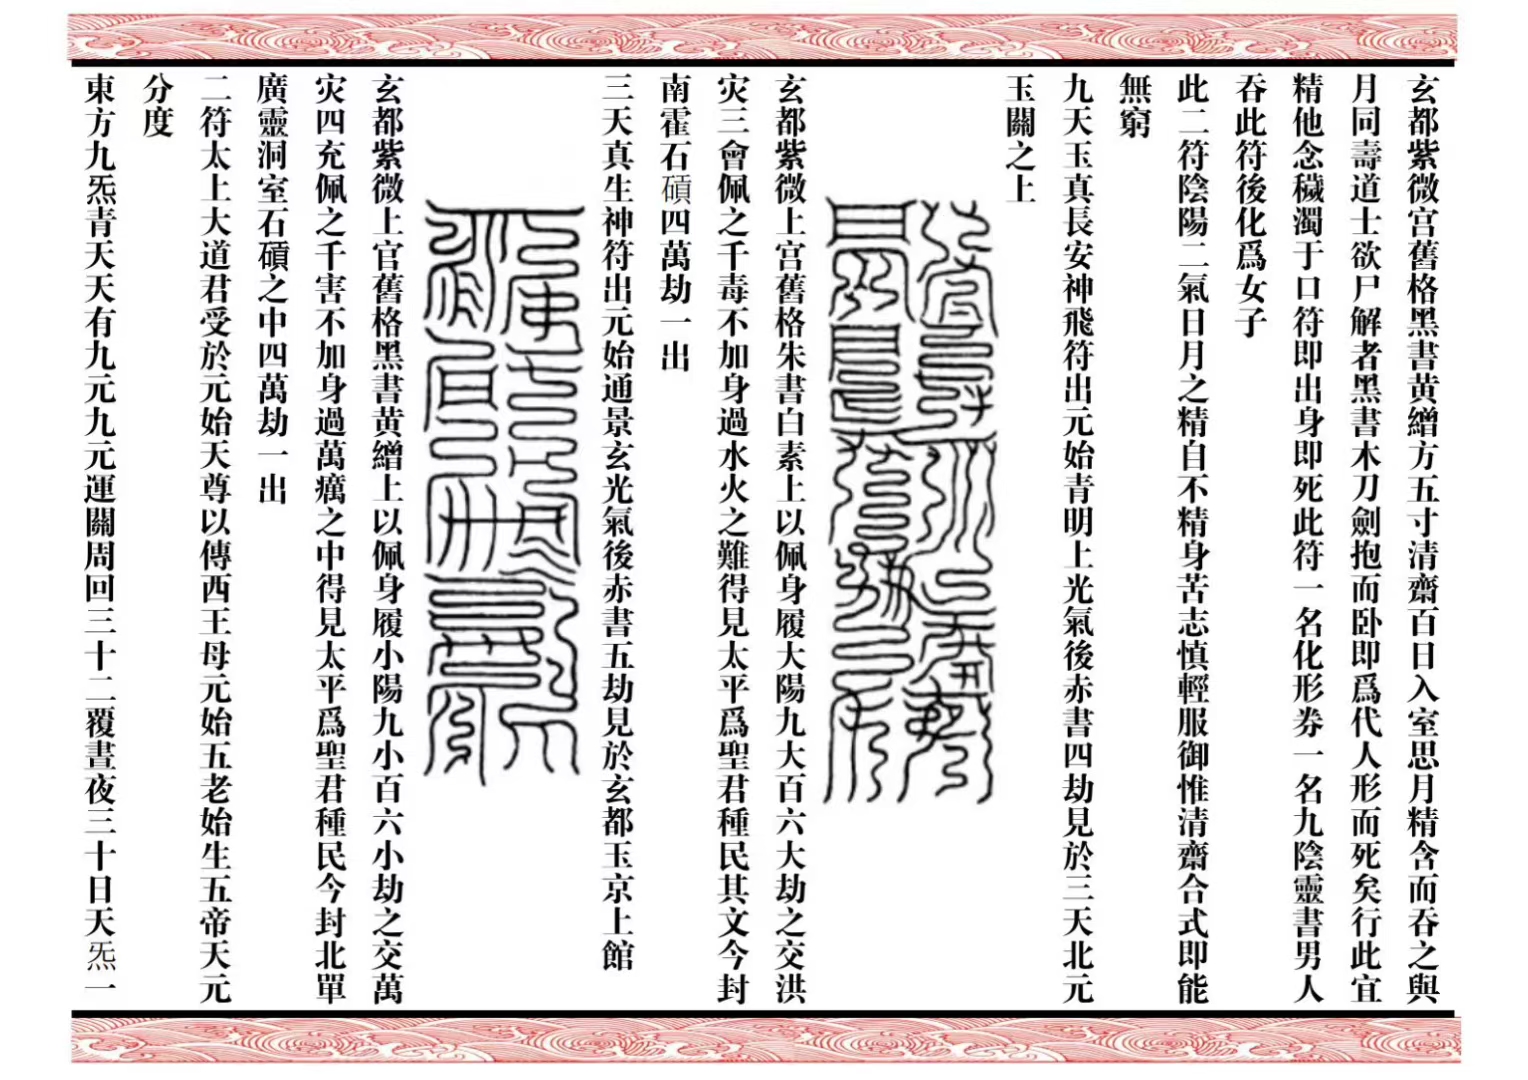 玄都紫微宫舊格黑書黄繒方五寸清齋百日入室思月精含而吞之與
月同壽道士欲尸解者黑書木刀劍抱而卧即爲代人形而死矣行此宜
精他念穢濁于口符即出身即死此符一名化形券一名九陰靈書男人
吞此符後化爲女子
此二符陰陽二氣日月之精自不精身苦志慎輕服御惟清齋合式即能
無窮
九天玉真長安神飛符出元始青明上光氣後赤書四劫見於三天北元
玉關之上
玄都紫微上宫舊格朱書白素上以佩身履大陽九大百六大劫之交洪
灾三會佩之千毒不加身過水火之難得見太平爲聖君種民其文今封
南霍石碩四萬劫一出
三天真生神符出元始通景玄光氣後赤書五劫見於玄都玉京上館
玄都紫微上官舊格黑書黄繒上以佩身履小陽九小百六小劫之交萬
灾四充佩之千害不加身過萬癘之中得見太平爲聖君種民今封北單
廣靈洞室石碩之中四萬劫一出
二符太上大道君受於元始天尊以傳西王母元始五老始生五帝天元
分度
東方九炁青天天有九元九元運關周回三十二覆晝夜三十日天炁一